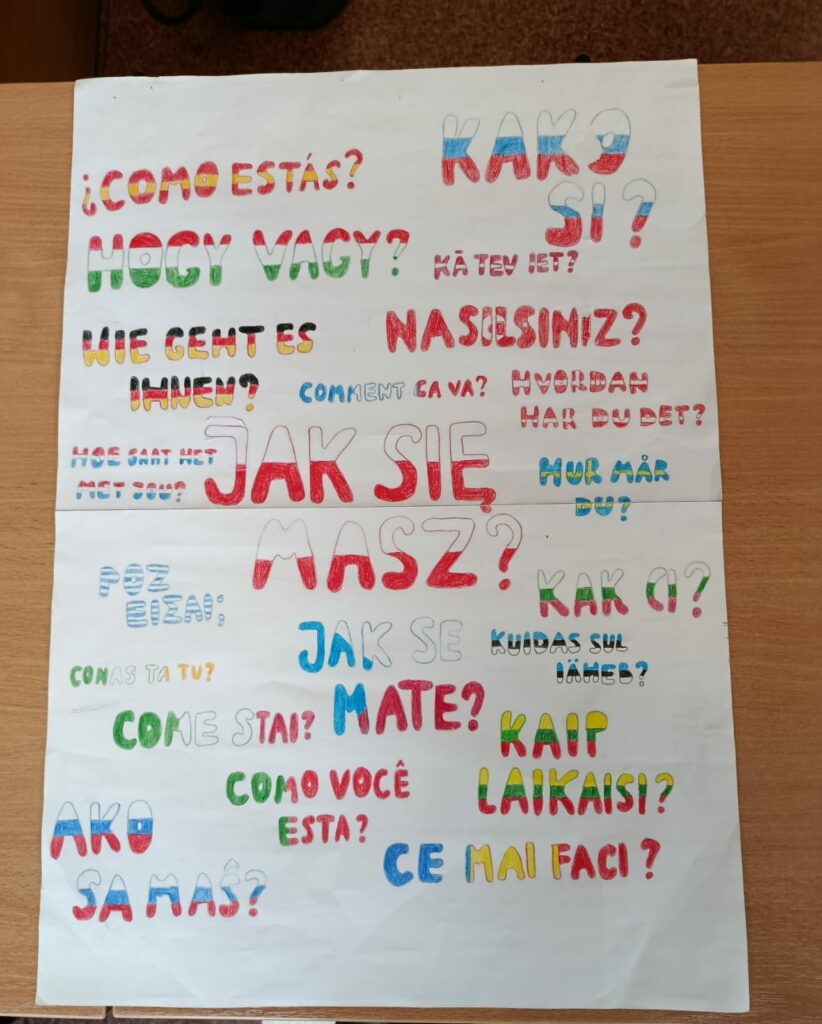 ¿COMO ESTÁS?
KAKO
SI?
HOGY VAGY?
KĀ TEV IET?
WIE GEHT ES
IHNEN?
NASILSINIZ?
COMMENT CA VA?
HVORDAN
HAR DU DET?
HOE GAAT HET
MET JOU?
JAK SIĘ
MASZ?
HUR MÅR
DU?
POZ
EIΣAI;
KAK CI?
JAK SE
MATE?
KUIDAS SUL
LÄHEB?
CONAS TA TU?
COME STAI?
KAIP
LAIKAISI?
COMO VOCÊ
ESTA?
AKO
SA MAŜ?
CE MAI FACI?